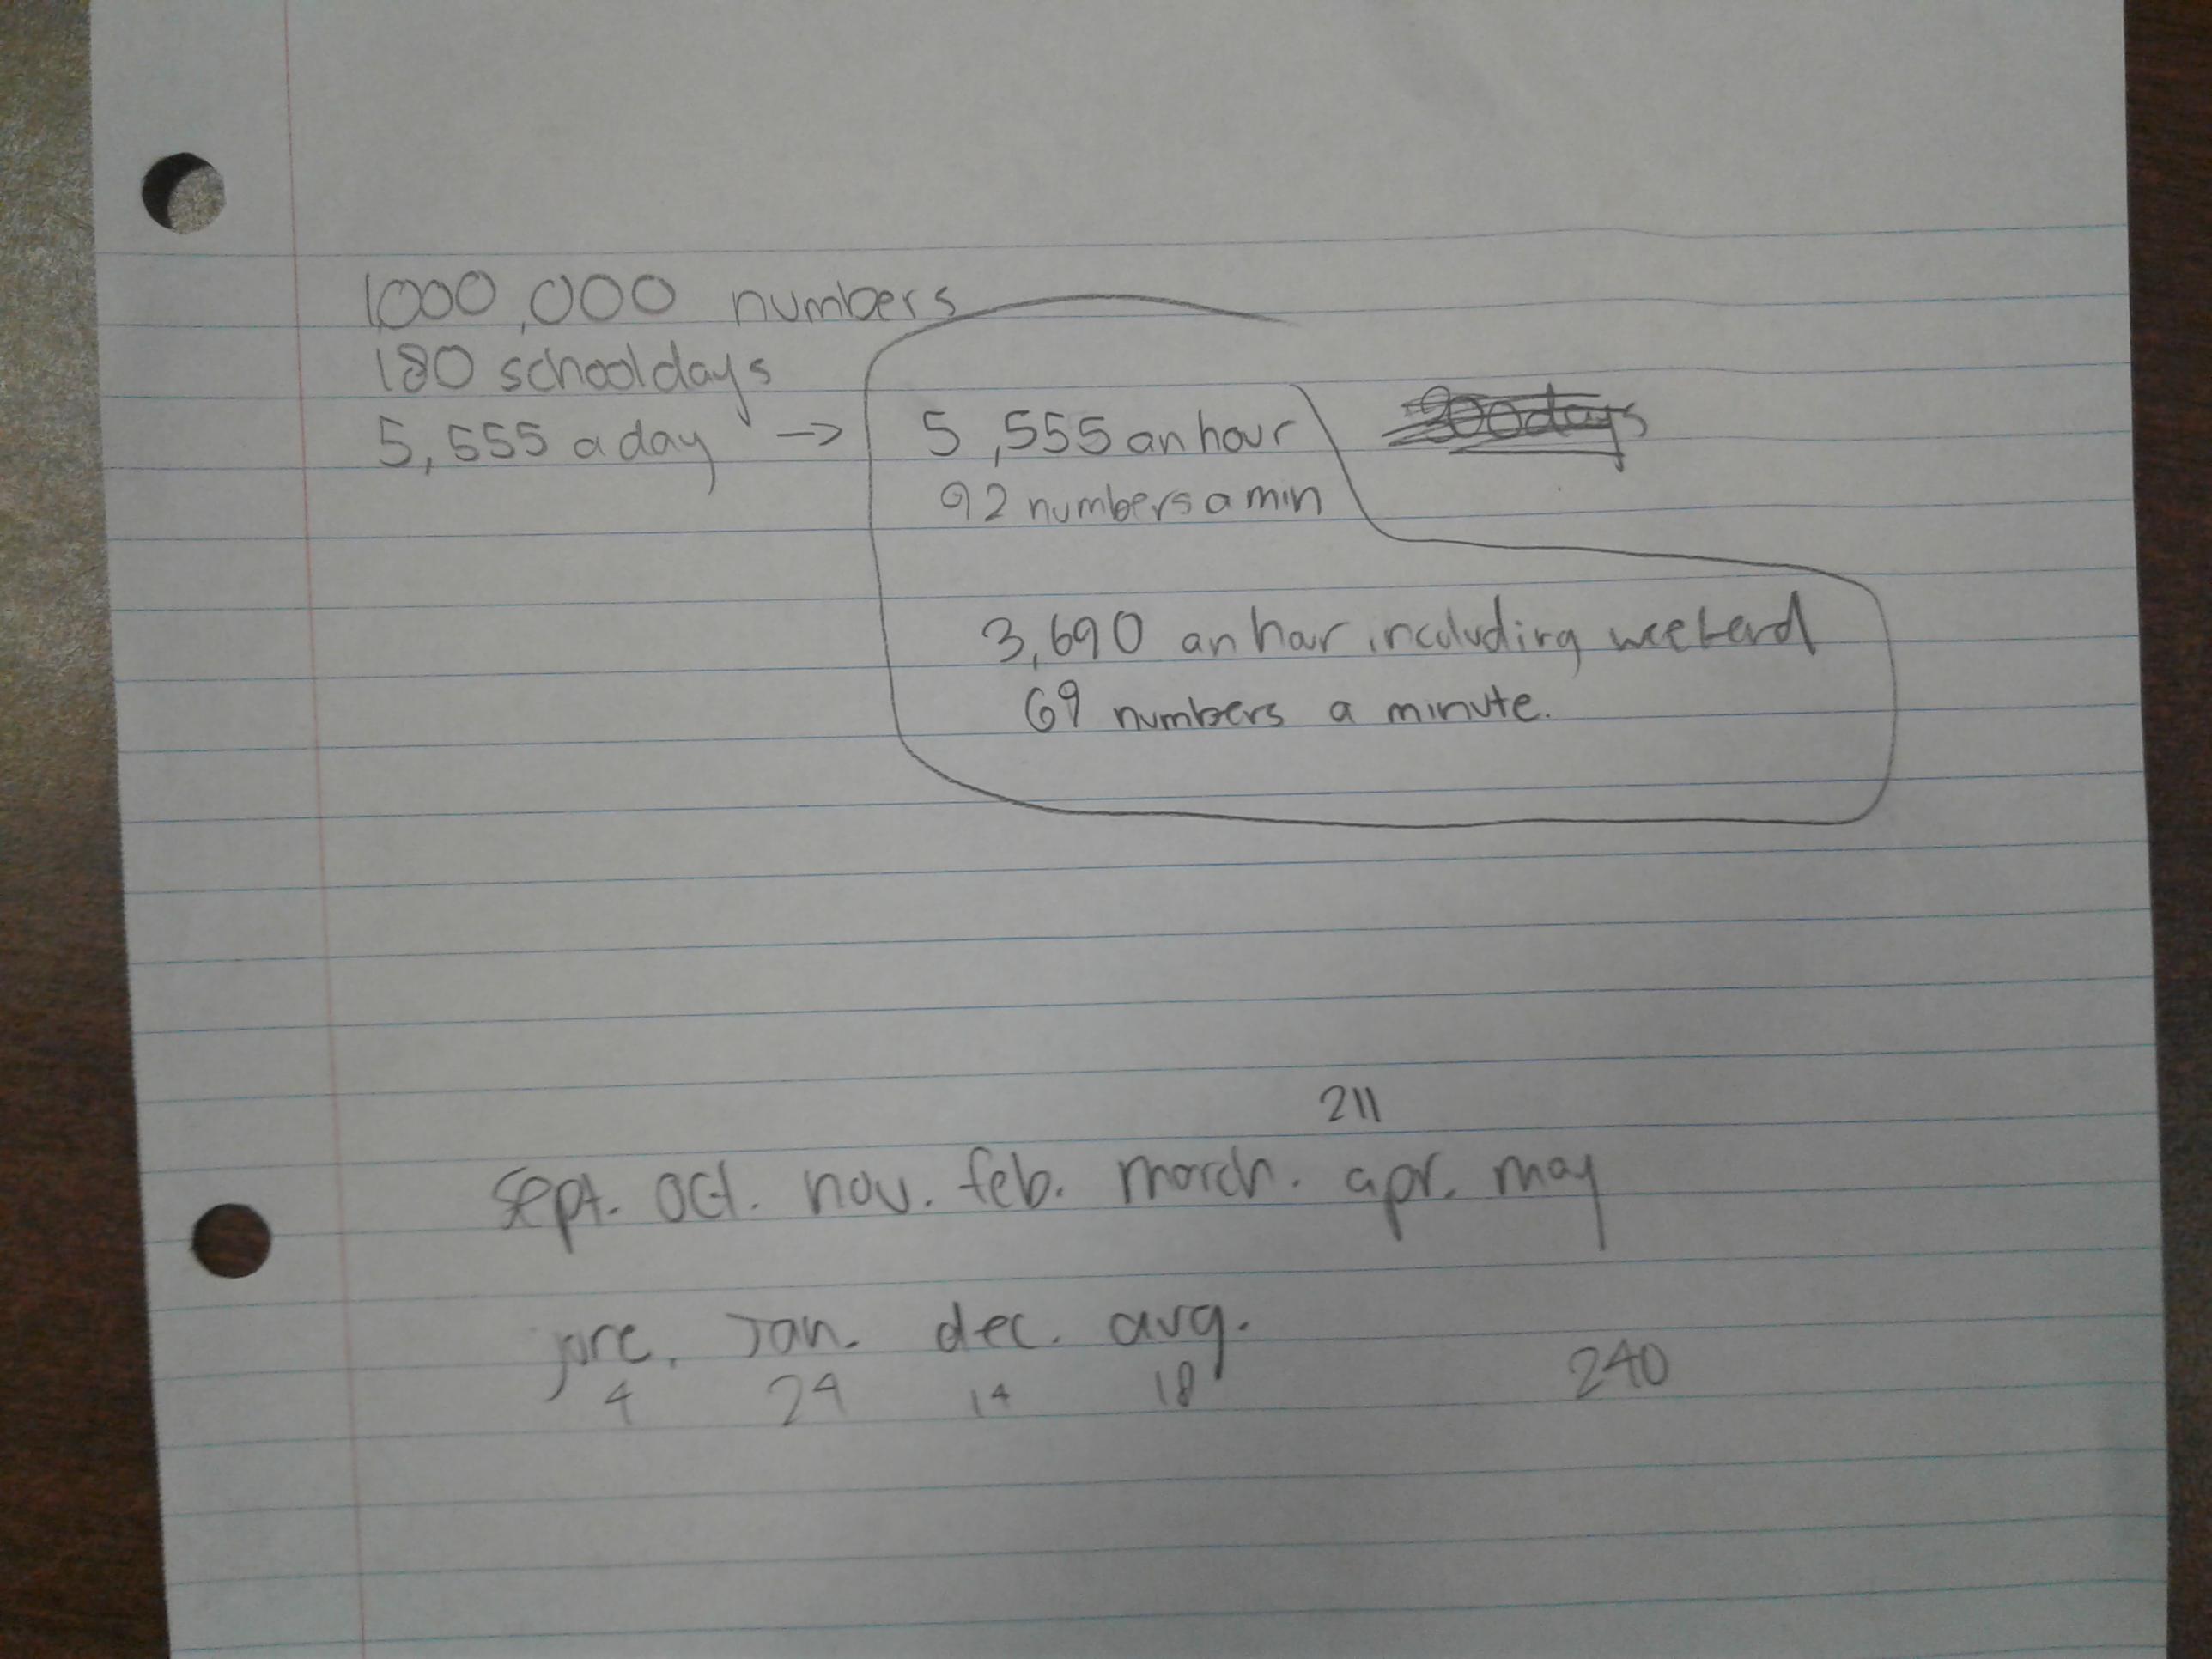 1000,000 numbers
180 schooldays
5,555 a day -> 5,555 an hour
92 numbers a min
3,690 an hour incvluding weekend
69 numbers a minute.
211
Sept. Oct. nov. feb. march. apr. may
june. Jan. dec. aug.
4 24 14 18 240